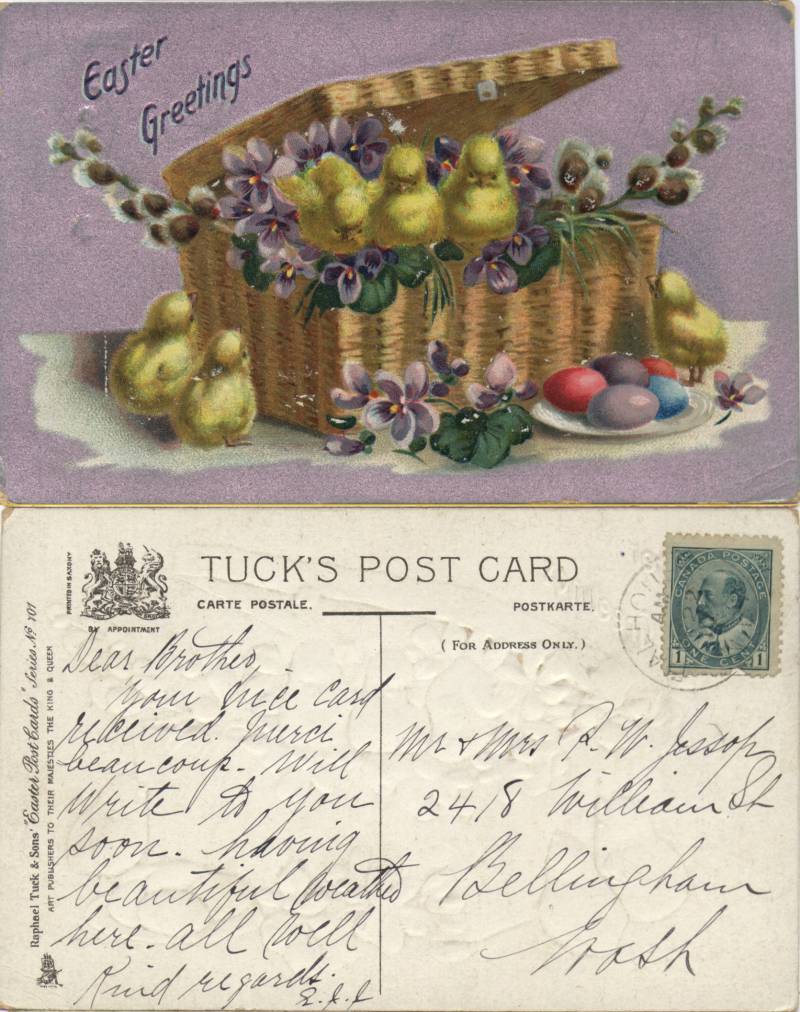 Easter
Greetings
TUCK'S POST CARD
CARTE POSTALE.
POSTKARTE.
(FOR ADDRESS ONLY.)
PRINTED IN SAXONY
BY APPOINTMENT
CANADA POSTAGE
1 ONE CENT 1
Dear Brother, -
Your nice card
received. Merci
beaucoup. Will
write to you
soon. having
beautiful weather
here. all well
Kind regards.
Mr & Mrs P. W. Jessop
2418 William St
Bellingham
Wash
Raphael Tuck & Sons' "Easter Post Cards" Series No 101
ART PUBLISHERS TO THEIR MAJESTIES THE KING & QUEEN